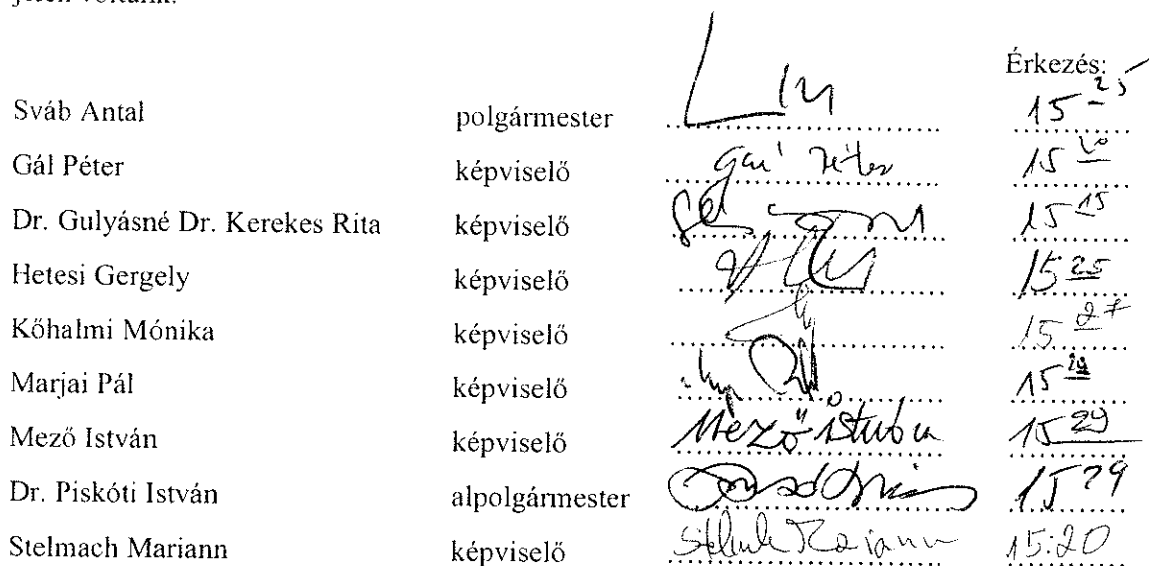 jelen voltunk:
Érkezés:
Sváb Antal polgármester 15 25
Gál Péter képviselő Gál Péter 15 20
Dr. Gulyásné Dr. Kerekes Rita képviselő 15 15
Hetesi Gergely képviselő 15 25
Kőhalmi Mónika képviselő 15 27
Marjai Pál képviselő 15
Mező István képviselő Mező István 15 29
Dr. Piskóti István alpolgármester 15 29
Stelmach Mariann képviselő Mariann 15:20